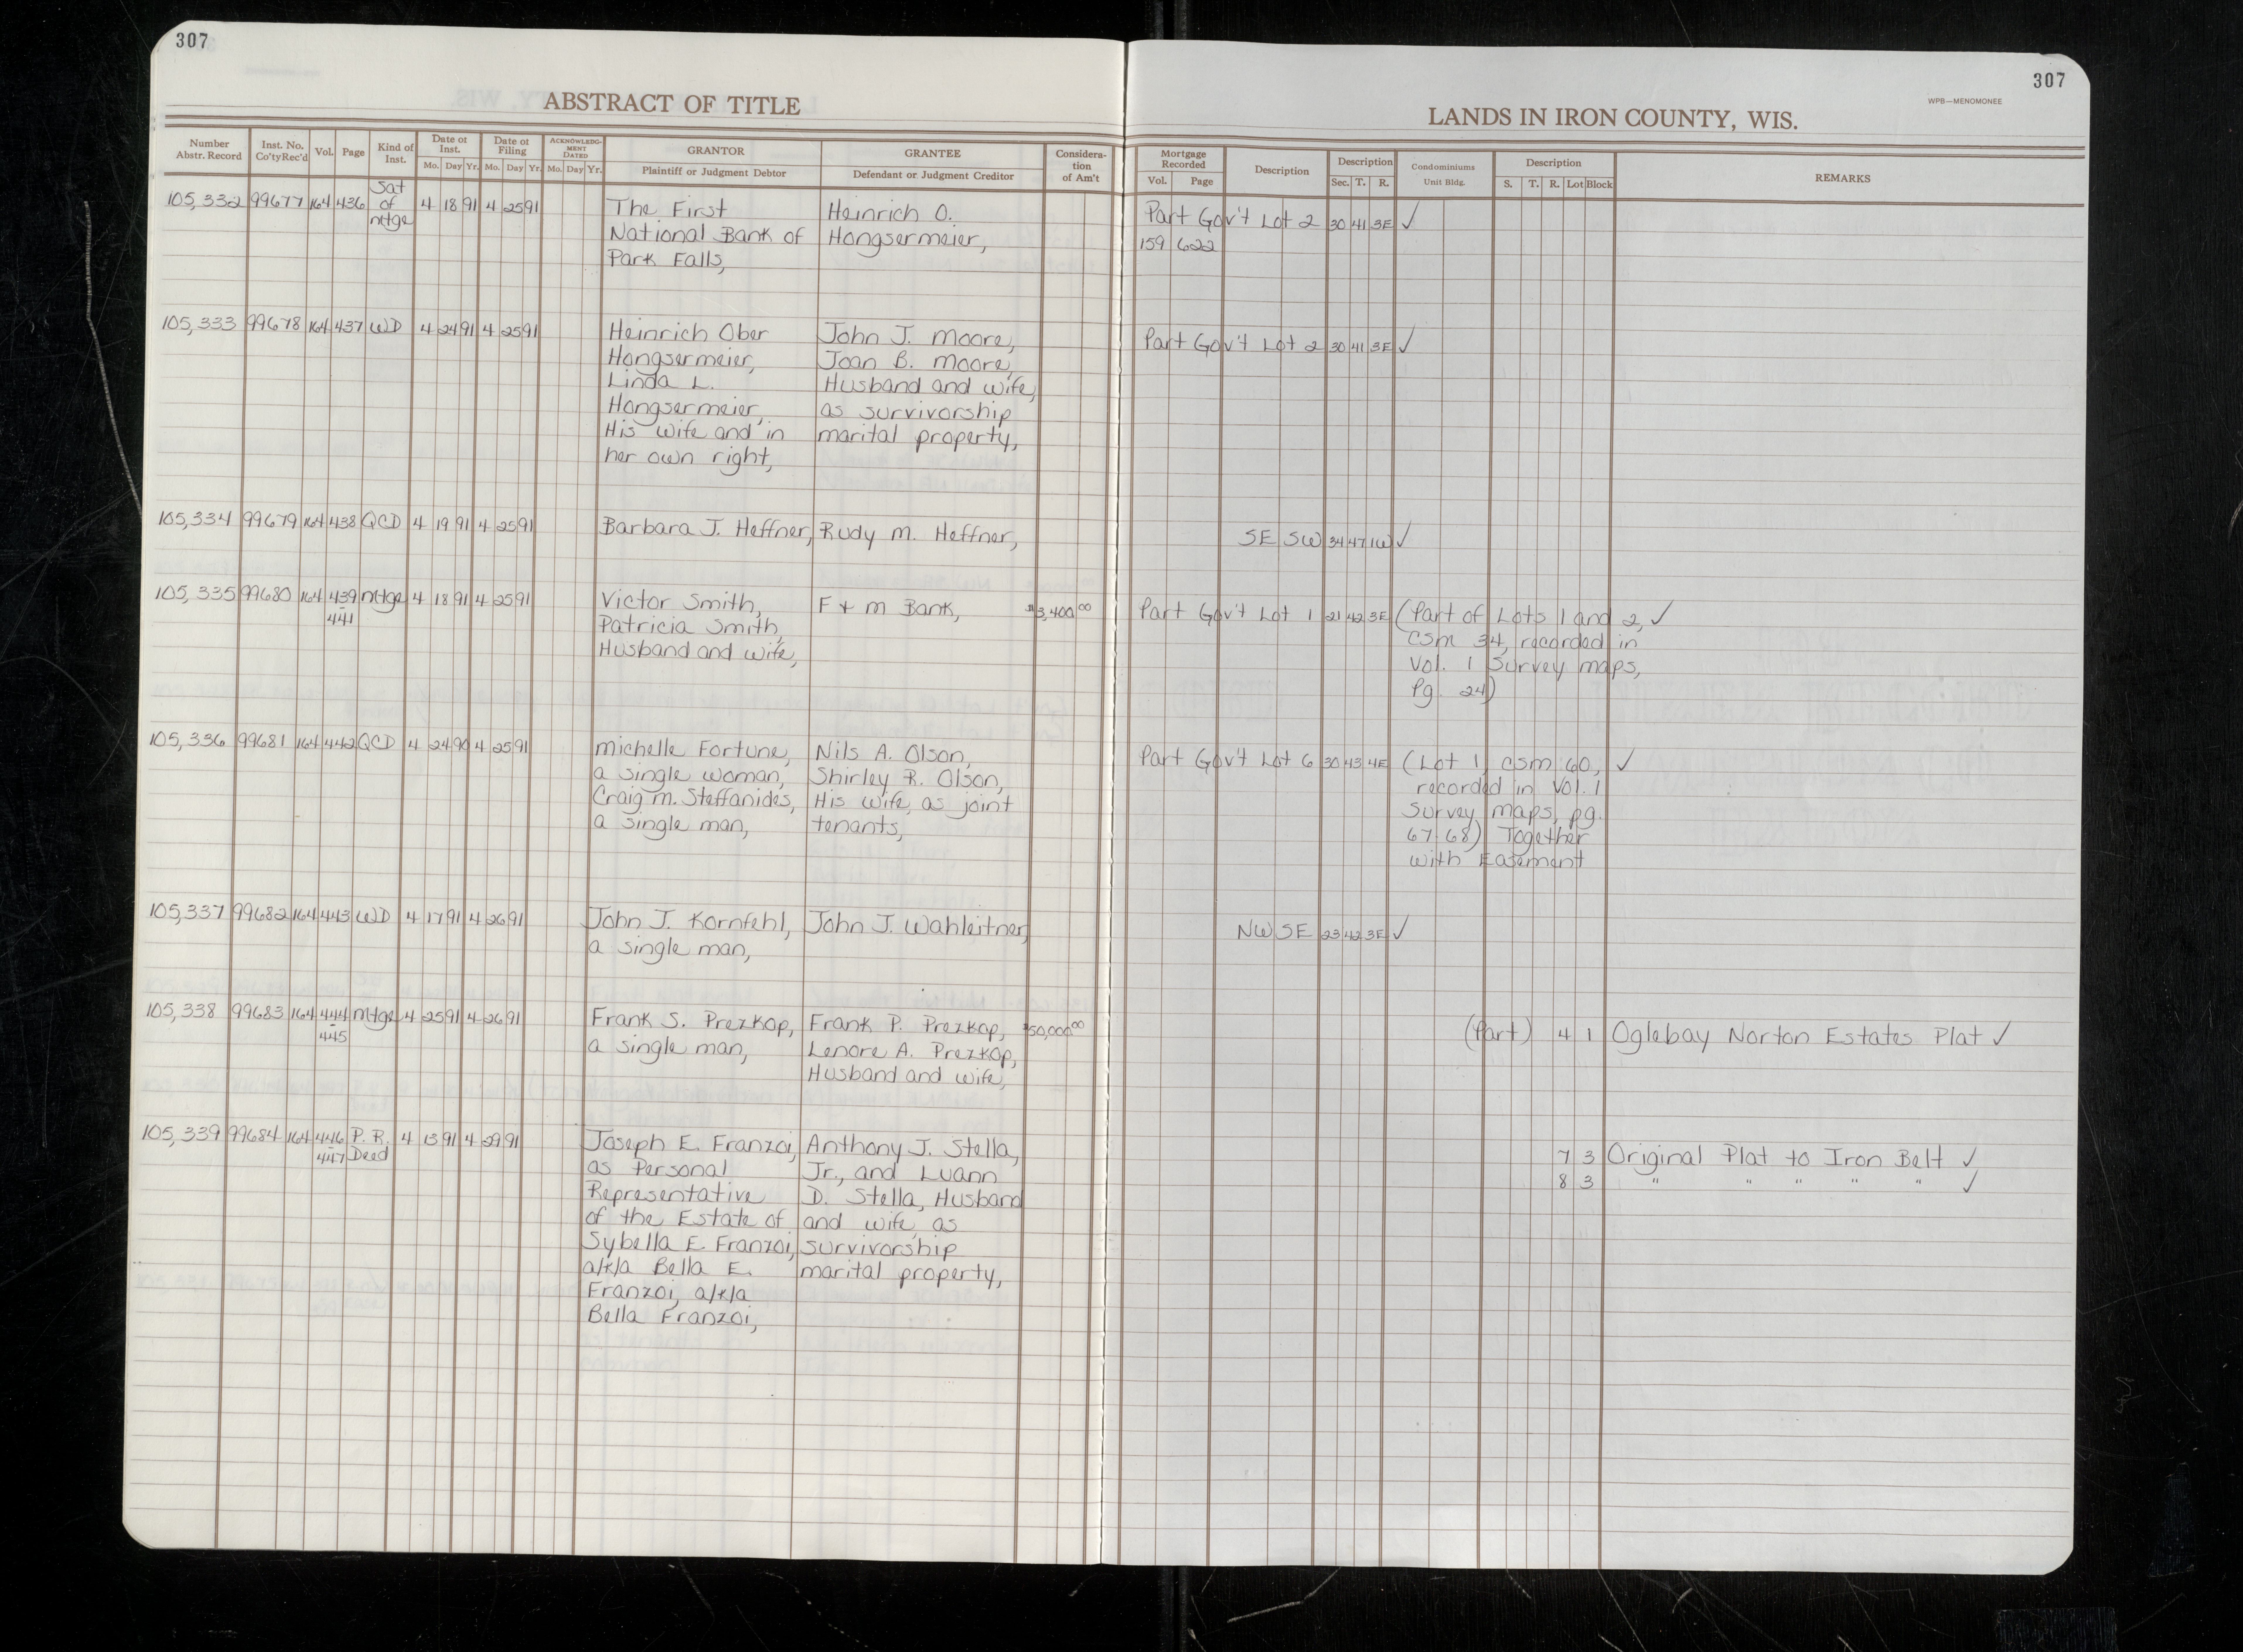 307
307
ABSTRACT OF TITLE
LANDS IN IRON COUNTY, WIS.
WPB—MENOMONEE
Number Abstr. Record
Inst. No. Co'ty Rec'd
Vol.
Page
Kind of Inst.
Date of Inst.
Mo. Day Yr.
Date of Filing
Mo. Day Yr.
ACKNOWLEDG-MENT DATED
Mo. Day Yr.
GRANTOR
Plaintiff or Judgment Debtor
GRANTEE
Defendant or Judgment Creditor
Considera-tion of Am't
Mortgage Recorded
Vol. Page
Description
Description
Sec. T. R.
Condominiums
Unit Bldg.
Description
S. T. R. Lot Block
REMARKS
Sat
105,332 99677 164 436 of 4 18 91 4 25 91 The First Heinrich O. Part Gov't Lot 2 30 41 3E ✓
mtge National Bank of Hongsermeier, 159 622
Park Falls,
105,333 99678 164 437 WD 4 24 91 4 25 91 Heinrich Ober John J. Moore, Part Gov't Lot 2 30 41 3E ✓
Hongsermeier, Joan B. Moore,
Linda L. Husband and wife,
Hongsermeier, as survivorship
His wife and in marital property,
her own right,
105,334 99679 164 438 QCD 4 19 91 4 25 91 Barbara J. Heffner, Rudy M. Heffner, SE SW 34 47 1W ✓
105,335 99680 164 439 mtge 4 18 91 4 25 91 Victor Smith, F + M Bank, $3,400 00 Part Gov't Lot 1 21 42 3E (Part of Lots 1 and 2, ✓
- 441 Patricia Smith, CSM 34, recorded in
Husband and wife, Vol. 1 Survey Maps,
Pg. 24)
105,336 99681 164 442 QCD 4 24 90 4 25 91 Michelle Fortune, Nils A. Olson, Part Gov't Lot 6 30 43 4E (Lot 1, CSM 60, ✓
a single woman, Shirley R. Olson, recorded in Vol. 1
Craig M. Steffanides, His wife, as joint Survey Maps, pg.
a single man, tenants, 67-68) Together
with Easement
105,337 99682 164 443 WD 4 17 91 4 26 91 John J. Kornfehl, John J. Wahleitner, NW SE 23 42 3E ✓
a single man,
105,338 99683 164 444 mtge 4 25 91 4 26 91 Frank S. Prezkop, Frank P. Prezkop, $50,000 00 (Part) 4 1 Oglebay Norton Estates Plat ✓
- 445 a single man, Lenore A. Prezkop,
Husband and wife,
105,339 99684 164 446 P. R. 4 13 91 4 29 91 Joseph E. Franzoi, Anthony J. Stella, 7 3 Original Plat to Iron Belt ✓
- 447 Deed as Personal Jr., and Luann 8 3 " " " " " ✓
Representative D. Stella, Husband
of the Estate of and wife, as
Sybella E. Franzoi, survivorship
a/k/a Bella E. marital property,
Franzoi, a/k/a
Bella Franzoi,